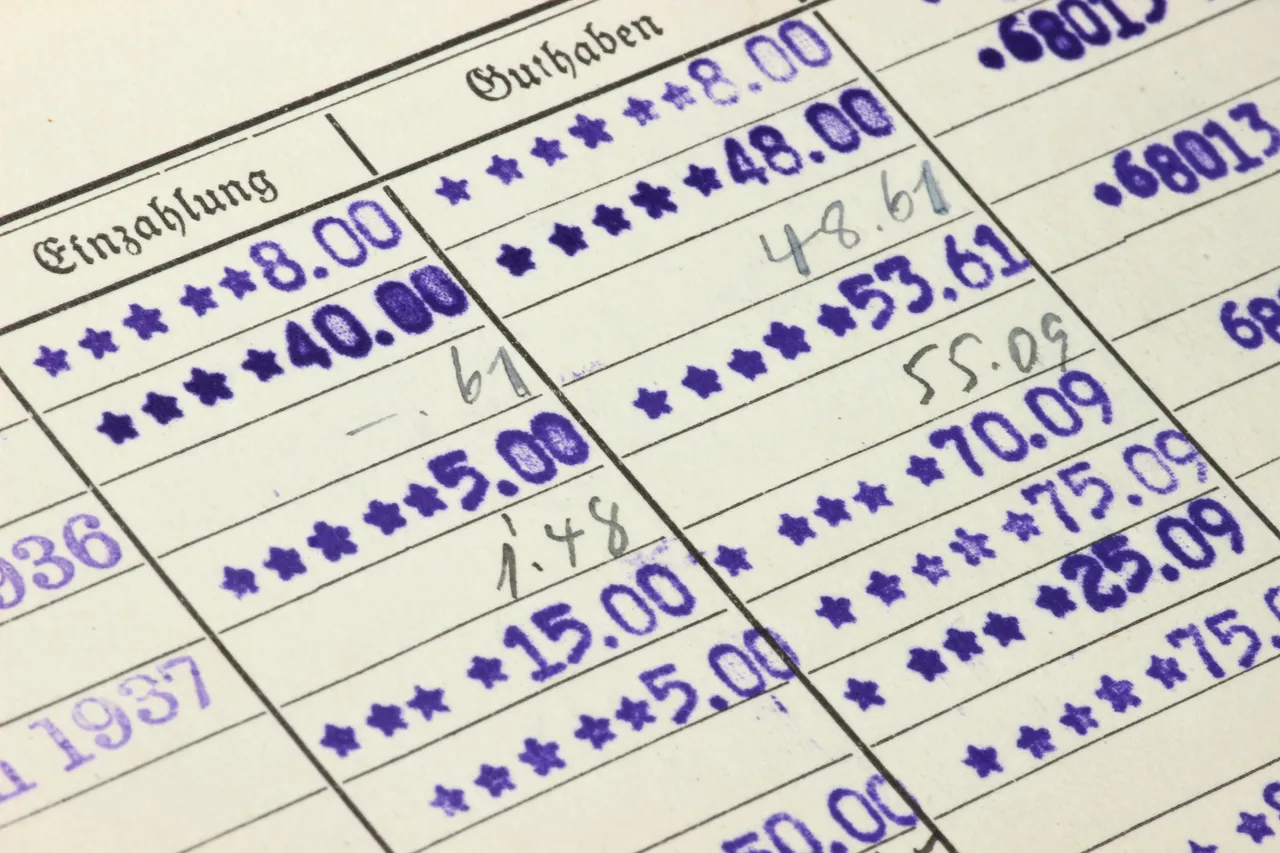 Einzahlung Guthaben
*****8.00 *****8.00 .68013
****40.00 *****48.00 .68013
—.61 48.61
*****5.00 *****53.61 68
1.48 55.09
936 ****15.00 *****70.09
*****5.00 *****75.09
1937 *****25.09
50.00 *****75.